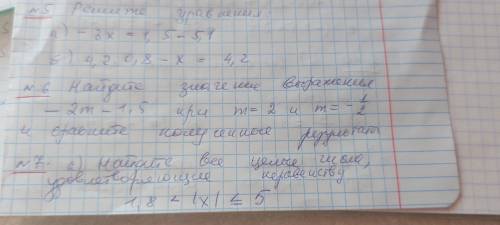 №5 Решите уравнения
а) -3x = 1,5 - 5,4
б) 4,2 · 0,8 - x = 4,2
№6 Найдите значение выражения
- 2m - 1,5 при m = 2 и m = -1/2
и сравните полученные результат
№7. а) Найдите все целые числа,
удовлетворяющие неравенству
1,8 < |x| ≤ 5